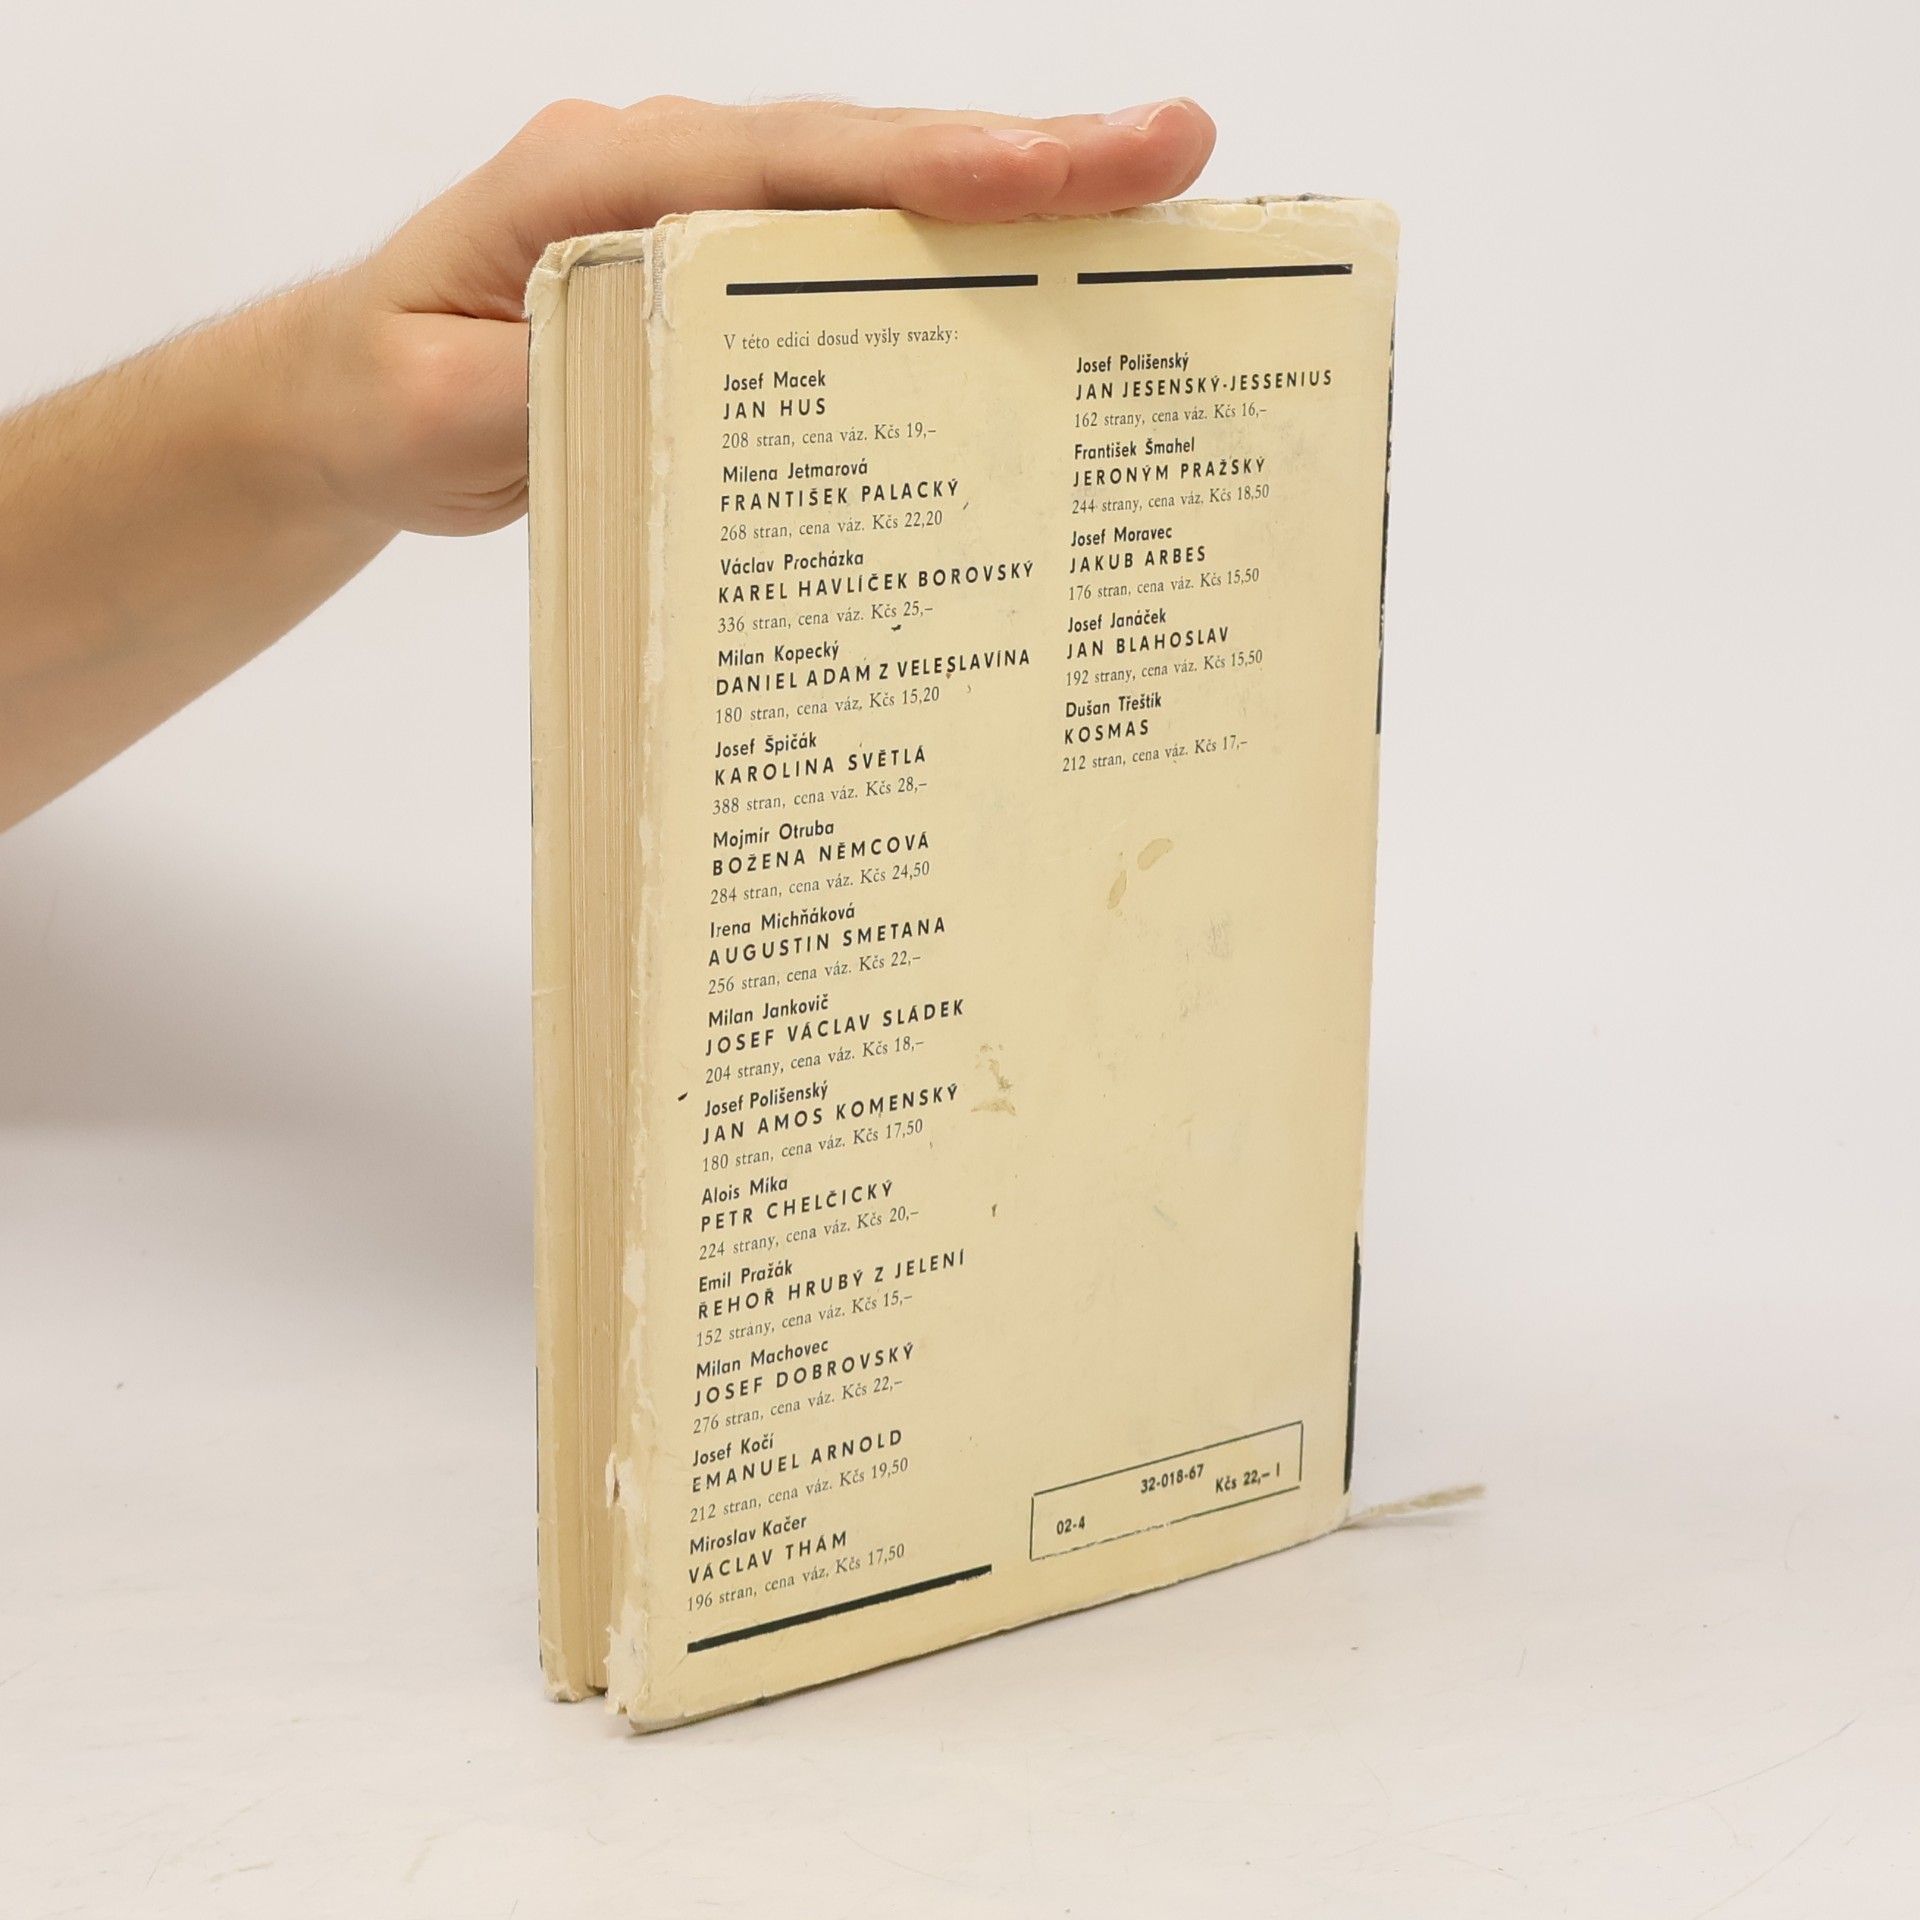 V této edici dosud vyšly svazky:
Josef Macek
JAN HUS
208 stran, cena váz. Kčs 19,–
Milena Jetmarová
FRANTIŠEK PALACKÝ
268 stran, cena váz. Kčs 22,20
Václav Procházka
KAREL HAVLÍČEK BOROVSKÝ
336 stran, cena váz. Kčs 25,–
Milan Kopecký
DANIEL ADAM Z VELESLAVÍNA
180 stran, cena váz. Kčs 15,20
Josef Špičák
KAROLINA SVĚTLÁ
388 stran, cena váz. Kčs 28,–
Mojmír Otruba
BOŽENA NĚMCOVÁ
284 stran, cena váz. Kčs 24,50
Irena Michňáková
AUGUSTIN SMETANA
256 stran, cena váz. Kčs 22,–
Milan Jankovič
JOSEF VÁCLAV SLÁDEK
204 strany, cena váz. Kčs 18,–
Josef Polišenský
JAN AMOS KOMENSKÝ
180 stran, cena váz. Kčs 17,50
Alois Míka
PETR CHELČICKÝ
224 strany, cena váz. Kčs 20,–
Emil Pražák
ŘEHOŘ HRUBÝ Z JELENÍ
152 strany, cena váz. Kčs 15,–
Milan Machovec
JOSEF DOBROVSKÝ
276 stran, cena váz. Kčs 22,–
Josef Kočí
EMANUEL ARNOLD
212 stran, cena váz. Kčs 19,50
Miroslav Kačer
VÁCLAV THÁM
196 stran, cena váz. Kčs 17,50
Josef Polišenský
JAN JESENSKÝ-JESSENIUS
162 strany, cena váz. Kčs 16,–
František Šmahel
JERONÝM PRAŽSKÝ
244 strany, cena váz. Kčs 18,50
Josef Moravec
JAKUB ARBES
176 stran, cena váz. Kčs 15,50
Josef Janáček
JAN BLAHOSLAV
192 strany, cena váz. Kčs 15,50
Dušan Třeštík
KOSMAS
212 stran, cena váz. Kčs 17,–
32-018-67
02-4 Kčs 22,– I